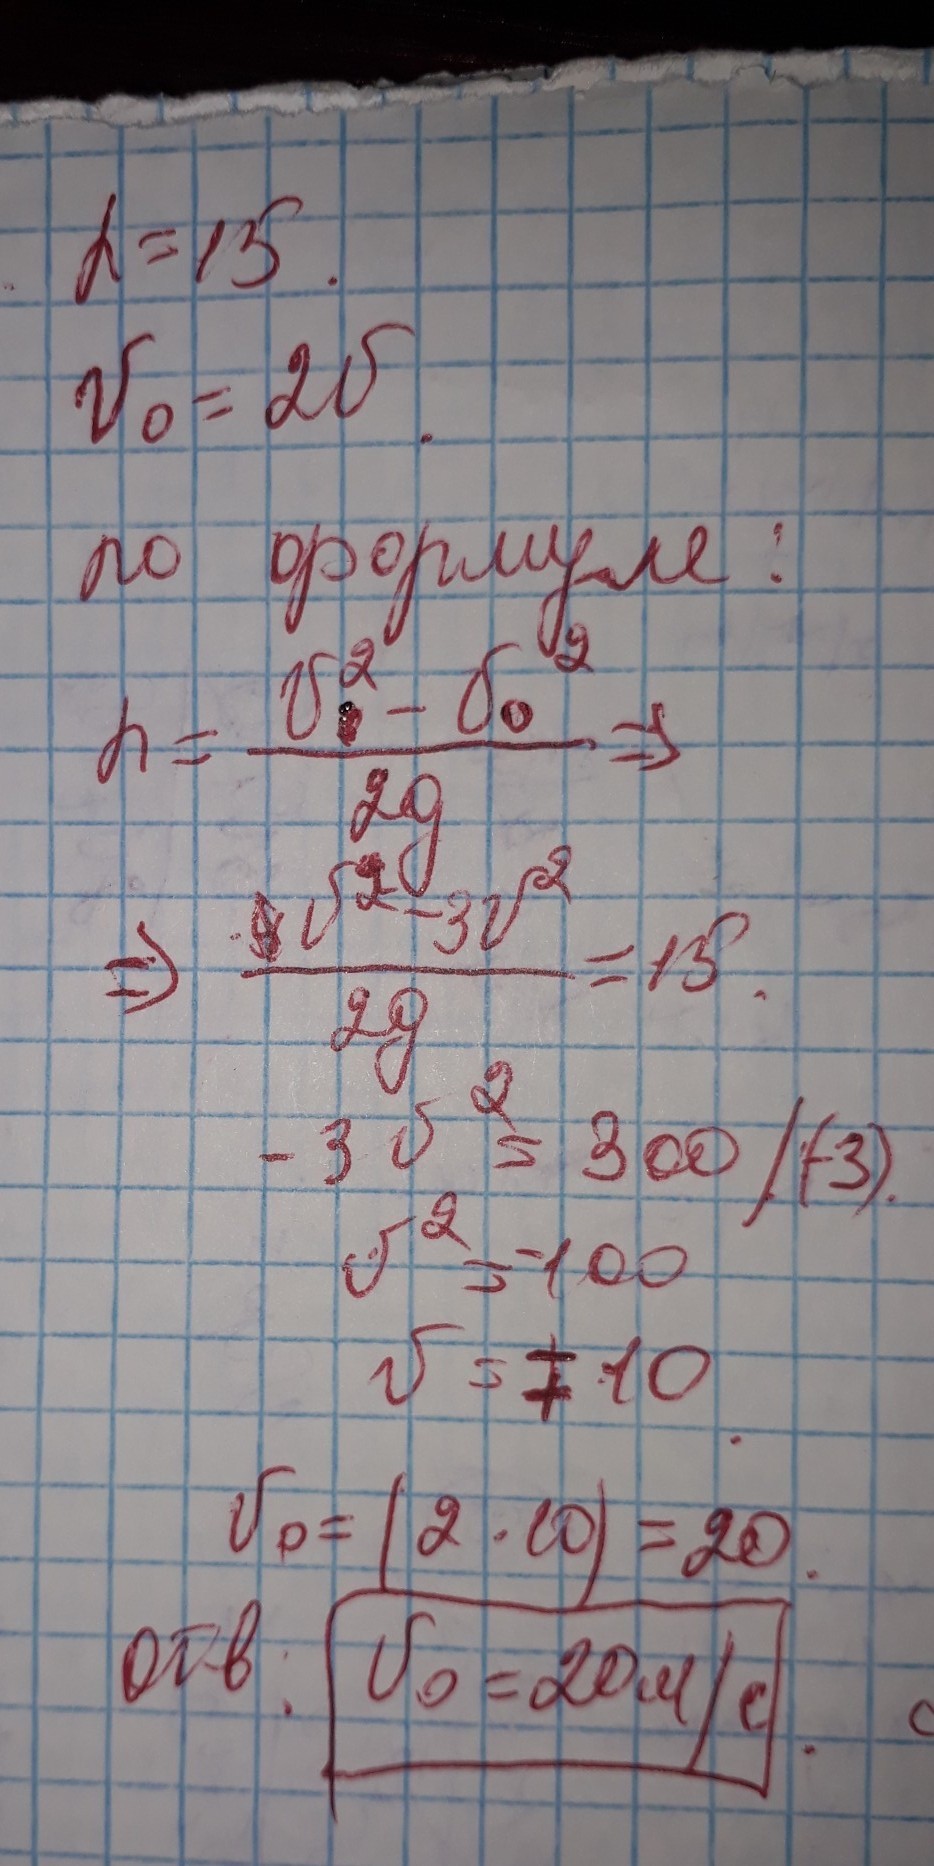 h = 15.
v₀ = 2v.
по формуле:
h = (v₁² - v₀²) / 2g ⇒
⇒ (v² - 3v²) / 2g = 15.
-3v² = 300 /(-3).
v² = -100
v = ∓10.
v₀ = |2 · 10| = 20.
отв: v₀ = 20 м/с.